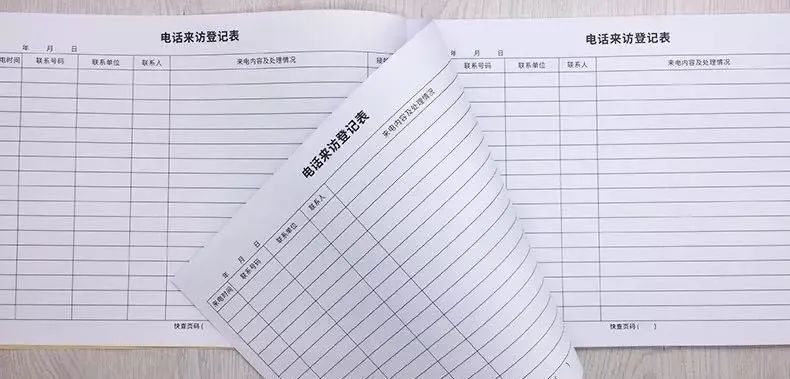 电话来访登记表
年 月 日
电时间 联系号码 联系单位 联系人 来电内容及处理情况
快查页码( )
电话来访登记表
年 月 日
来电时间 联系号码 联系单位 联系人 来电内容及处理情况
电话来访登记表
联系号码 联系单位 联系人 来电内容及处理情况
快查页码( )